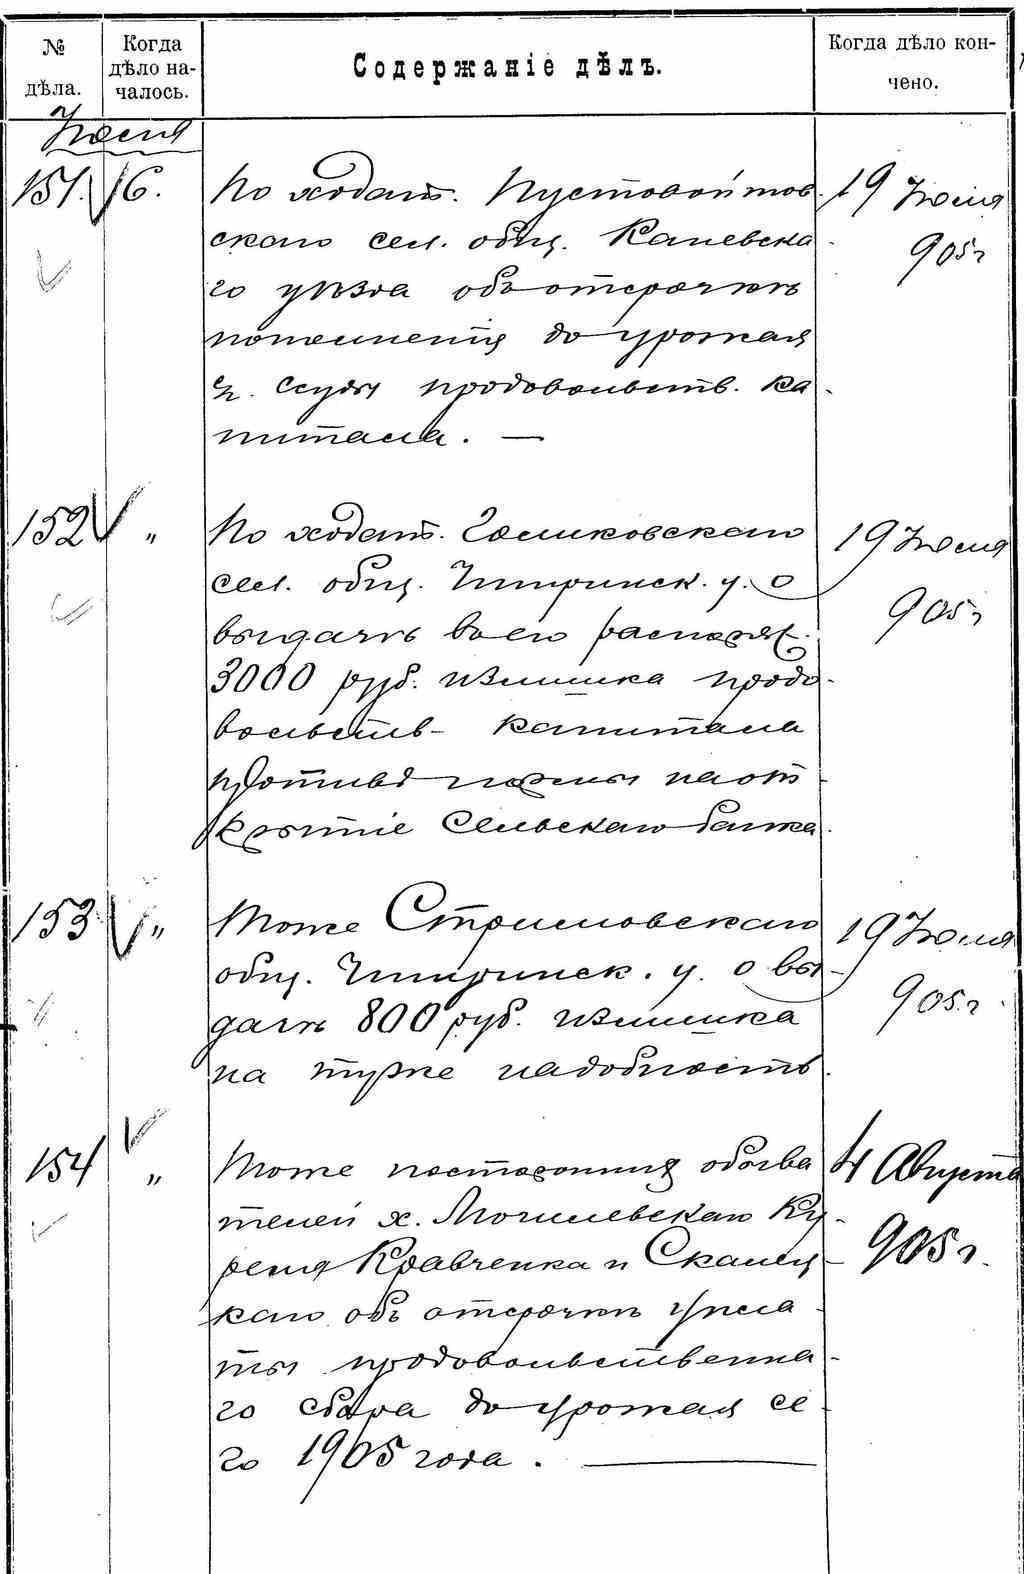 № дѣла.
Когда дѣло на-чалось.
Содержаніе дѣлъ.
Когда дѣло кон-чено.
Іюня
151. 16. По ходат. Пустовойтов-
скаго сел. общ. Каневска-
го уѣзда объ отсрочкѣ
пополненія до урожая
ссуды продовольств. ка-
питала. —
19 Іюля
905 г
152 " По ходат. Геликовскаго
сел. общ. Чигиринск. у. о
выдачѣ въ его распоряж.
3000 руб. излишка продо-
вольств- капитала
на от-
крытіе Сельскаго банка.
19 Іюля
905 г
153 " Тоже Стримовскаго
общ. Чигиринск. у. о вы-
дачѣ 800 руб. излишка
на туже надобность.
19 Іюля
905 г.
154 " Тоже постороннихъ обыва
телей х. Могилевскаго Ку-
реня Кравченка и Скалец-
каго объ отсрочкѣ упла-
ты продовольственна-
го сбора до урожая се-
го 1905 года. —
4 Августа
905 г.